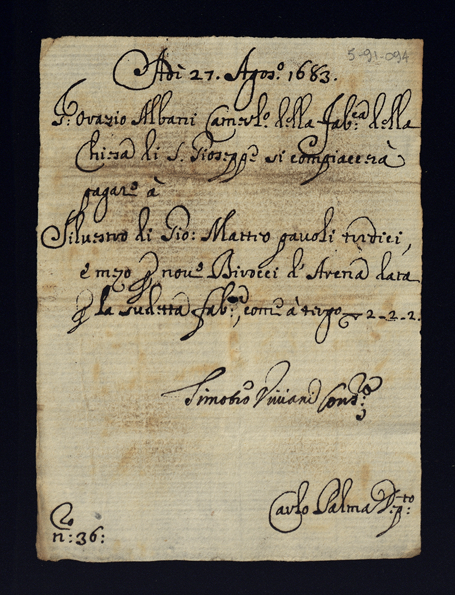 5-91-094
Adì 27. Agos.º 1683.
S.r Orazio Albani Camerl.º della Fab.ca della
Chiesa di S. Gioseppe si compiacerà
pagar.e à
Silvestro di Gio: Matteo pauoli tredici,
e mezo p nove Birocci d'Arena data
p la sudetta fab.ca, come à tergo 2-2-2.
Timoteo Viviani Cons.
Carlo Palma D.to
n: 36: